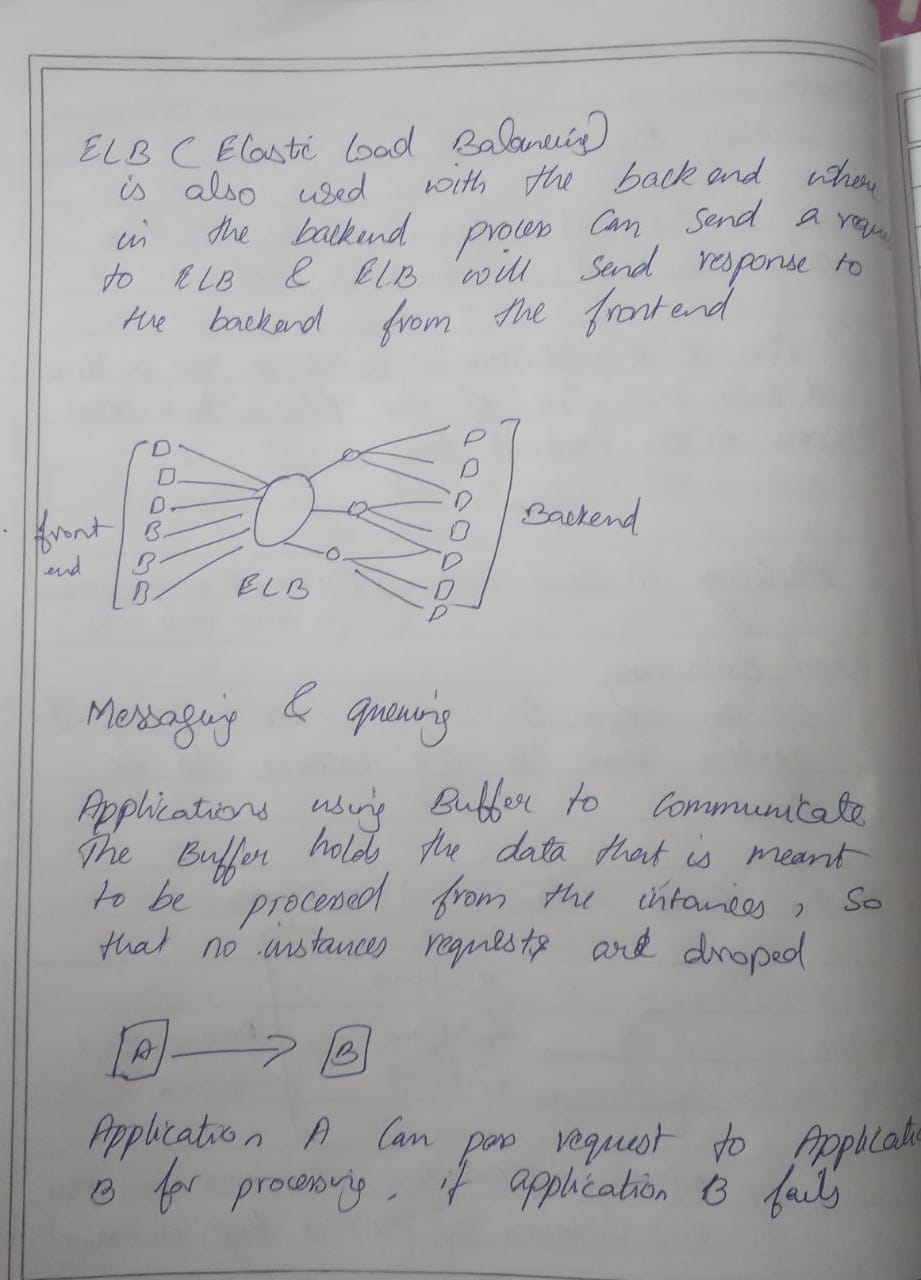 ELB ( Elastic load Balancing)
is also used with the back end where
in the backend process can send a
to ELB & ELB will send response to
the backend from the frontend
D
D
D
B
B
B
front
end
ELB
D
D
D
D
D
D
D
Backend
Messaging & queuing
Applications using Buffer to communicate
The Buffer holds the data that is meant
to be processed from the intances, so
that no instances requests are droped
A
B
Application A can pass request to
B for processing, if application B fails